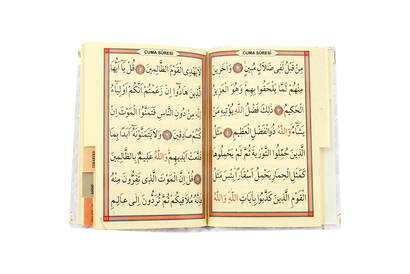 CUMA SÛRESİ
مِنْ قَبْلُ لَفِى ضَلَالٍ مُبِينٍ وَاٰخَرِينَ
مِنْهُمْ لَمَّا يَلْحَقُوا بِهِمْ وَهُوَ الْعَزِيزُ
الْحَكِيمُ ذٰلِكَ فَضْلُ اللّٰهِ يُؤْتِيهِ مَنْ
يَشَاءُ وَاللّٰهُ ذُو الْفَضْلِ الْعَظِيمِ مَثَلُ
الَّذِينَ حُمِّلُوا التَّوْرٰيةَ ثُمَّ لَمْ يَحْمِلُوهَا
كَمَثَلِ الْحِمَارِ يَحْمِلُ اَسْفَارًا بِئْسَ مَثَلُ
الْقَوْمِ الَّذِينَ كَذَّبُوا بِاٰيَاتِ اللّٰهِ وَاللّٰهُ
CUMA SÛRESİ
لَا يَهْدِى الْقَوْمَ الظَّالِمِينَ قُلْ يَا اَيُّهَا
الَّذِينَ هَادُوا اِنْ زَعَمْتُمْ اَنَّكُمْ اَوْلِيَاءُ
لِلّٰهِ مِنْ دُونِ النَّاسِ فَتَمَنَّوُا الْمَوْتَ اِنْ
كُنْتُمْ صَادِقِينَ وَلَا يَتَمَنَّوْنَهُ اَبَدًا بِمَا
قَدَّمَتْ اَيْدِيهِمْ وَاللّٰهُ عَلِيمٌ بِالظَّالِمِينَ
قُلْ اِنَّ الْمَوْتَ الَّذِى تَفِرُّونَ مِنْهُ
فَاِنَّهُ مُلَاقِيكُمْ ثُمَّ تُرَدُّونَ اِلٰى عَالِمِ